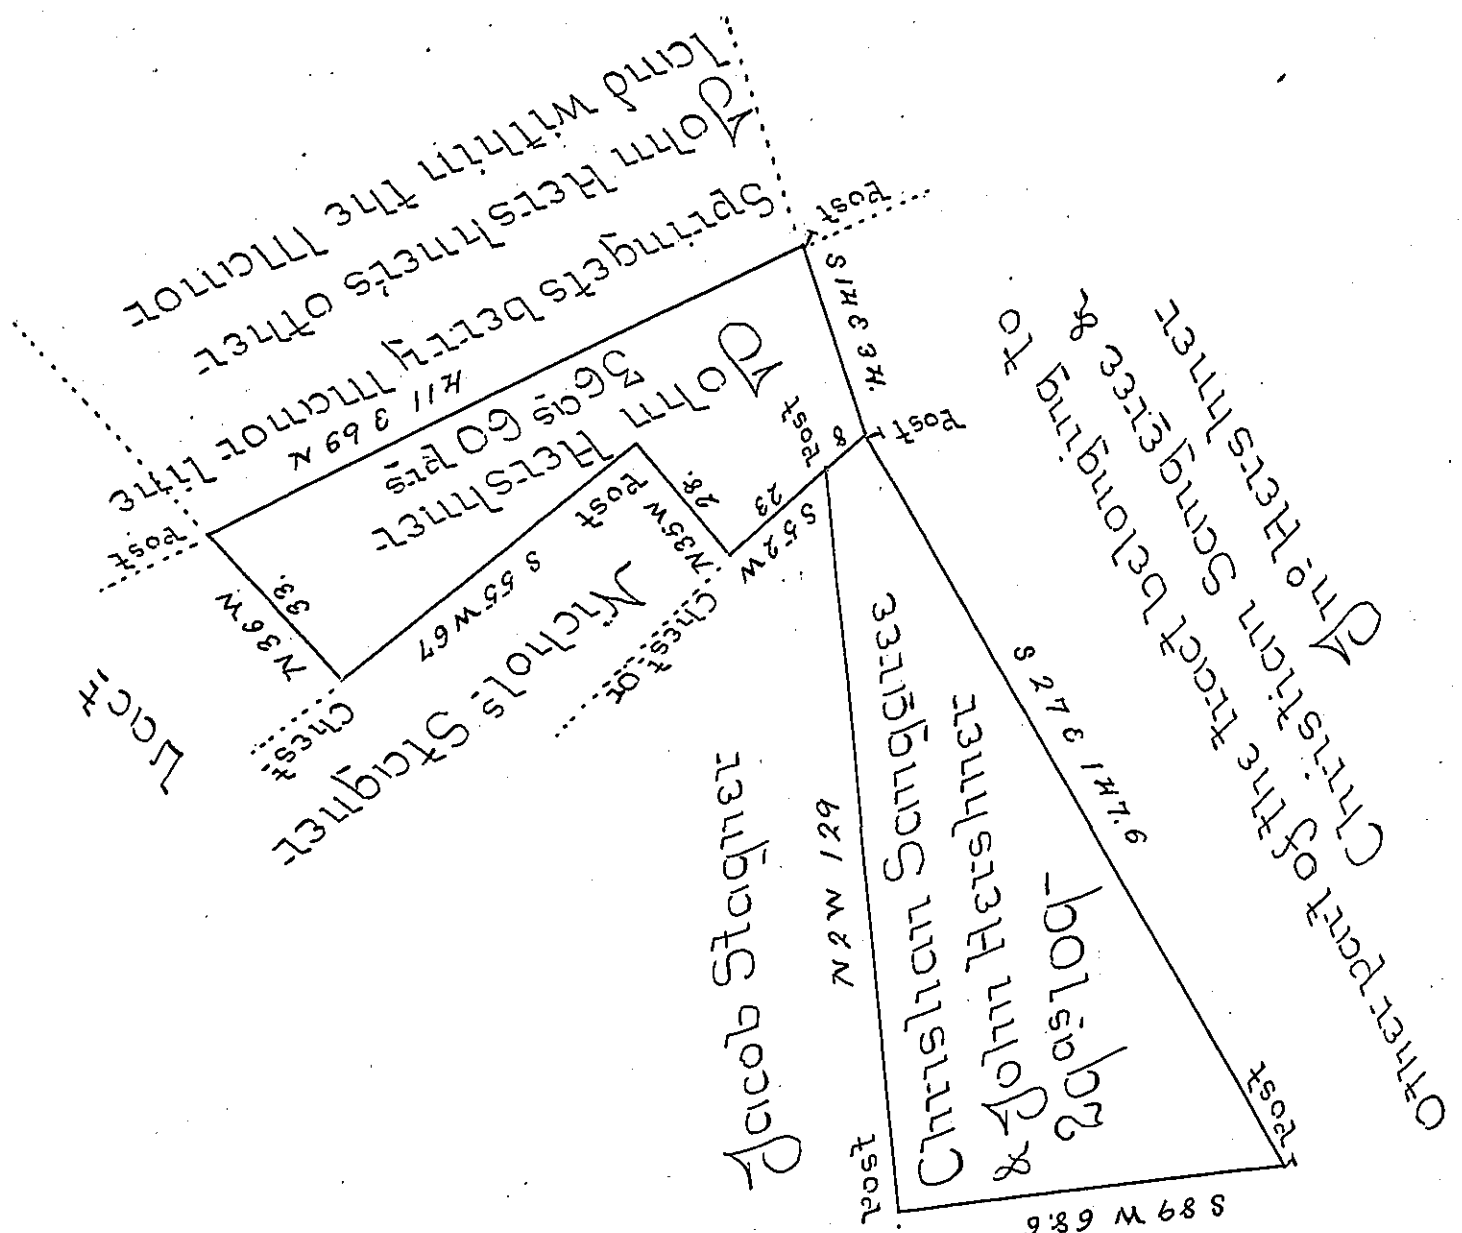 Springetsberry Manor line
John Hershner's other
land within the Manor
Post
Post
N 69 E 114
S 14 E 34.
John
Hershner
36as 60ps
Post
Post
8
S 52 W
23
Chest or
N35W
28.
Post
S 55 W 67
Chest
N 36 W
33.
Vact
Nichols Stagner
Jacob Stagner
N 2 W 129
Christian Sangree
& John Hershner
29as 109
S 27 E 147.6
Post
Post
S 89 W 68.6
Other part of the tract belonging to
Christian Sangree &
Jno Hershner